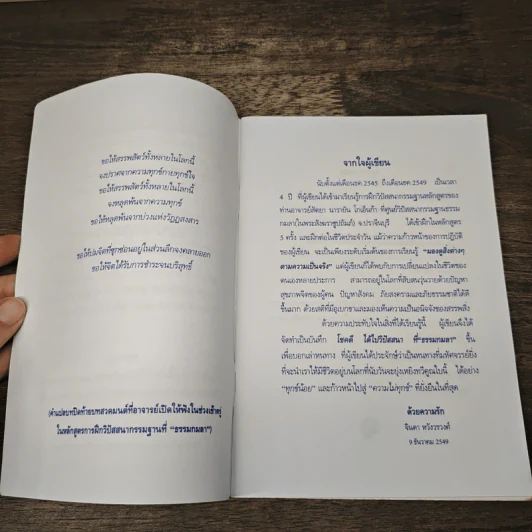 ขอให้สรรพสัตว์ทั้งหลายในโลกนี้
จงปราศจากความทุกข์กายทุกข์ใจ
ขอให้สรรพสัตว์ทั้งหลายในโลกนี้
จงหลุดพ้นจากความทุกข์
ขอให้หลุดพ้นจากบ่วงแห่งวัฏฏสงสาร
ขอให้ปมจิตที่ซุกซ่อนอยู่ในส่วนลึกจงคลายออก
ขอให้จิตได้รับการชำระจนบริสุทธิ์
(คำแปลบทปิดท้ายบทสวดมนต์ที่อาจารย์เปิดให้ฟังในช่วงเช้าตรู่
ในหลักสูตรการฝึกวิปัสสนากรรมฐานที่ "ธรรมกมลา")
จากใจผู้เขียน
นับตั้งแต่เดือนธค. 2545 ถึงเดือนธค. 2549 เป็นเวลา
4 ปี ที่ผู้เขียนได้เข้ามาเรียนรู้การฝึกวิปัสสนากรรมฐานหลักสูตรของ
ท่านอาจารย์สัตยา นารายัน โกเอ็นก้า ที่ศูนย์วิปัสสนากรรมฐานธรรม
กมลา จ.ปราจีนบุรี ได้เข้าฝึกในหลักสูตร
5 ครั้ง และฝึกต่อในชีวิตประจำวัน แม้ว่าความก้าวหน้าของการปฏิบัติ
ของผู้เขียน จะเป็นเพียงระดับเริ่มต้นของการเรียนรู้ "มองดูสิ่งต่างๆ
ตามความเป็นจริง" แต่ผู้เขียนก็ได้พบกับการเปลี่ยนแปลงในชีวิตของ
ตนเองหลายประการ สามารถอยู่ในโลกที่สับสนวุ่นวายด้วยปัญหา
สุขภาพจิตของผู้คน ปัญหาสังคม ภัยสงครามและภัยธรรมชาติได้ดี
ขึ้นมาก ด้วยสติที่มีอุเบกขาและมองเห็นความเป็นอนิจจังของสรรพสิ่ง
ด้วยความประทับใจในสิ่งที่ได้เรียนรู้นี้ ผู้เขียนจึงได้
จัดทำเป็นบันทึก โชคดี ได้ไปวิปัสสนา ที่"ธรรมกมลา" ขึ้น
เพื่อบอกเล่าหนทาง ที่ผู้เขียนได้ประจักษ์ว่าเป็นหนทางที่มหัศจรรย์ยิ่ง
ที่จะนำเราให้มีชีวิตอยู่บนโลกที่นับวันจะยุ่งเหยิงทวีคูณใบนี้ ได้อย่าง
"ทุกข์น้อย" และก้าวหน้าไปสู่ "ความไม่ทุกข์" ที่ยั่งยืนในที่สุด
ด้วยความรัก
จินดา หวังวรวงศ์
9 ธันวาคม 2549